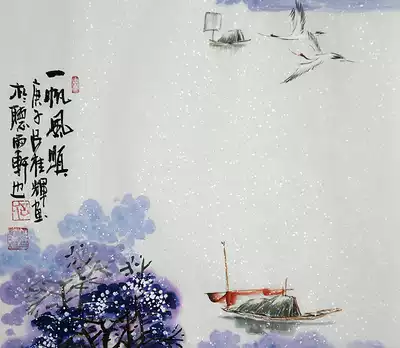 一帆风顺
庚子吕桂辉画
于听雨轩也